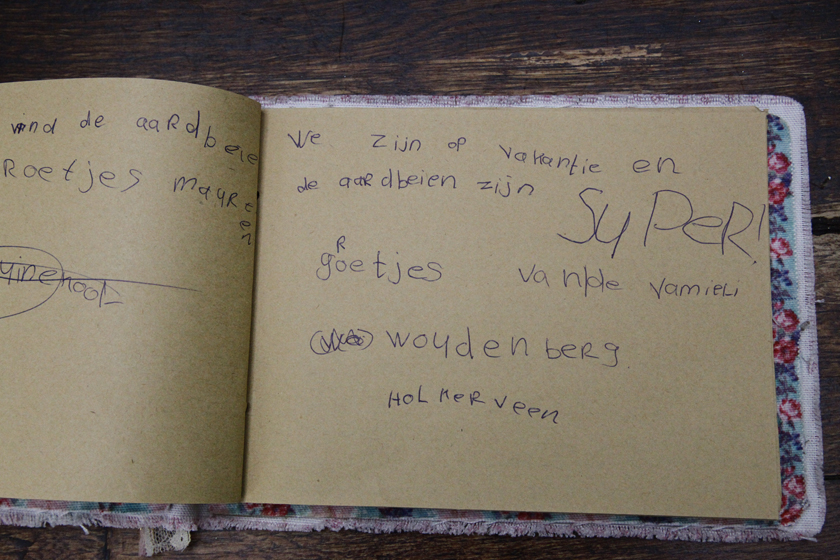 vind de aardbeie
Roetjes mayRe
en
We zijn op vakantie en
de aaRdbeien zijn
SyPeR!
gRoetjes van/de vamieli
woydenbeRg
HolkeRveen